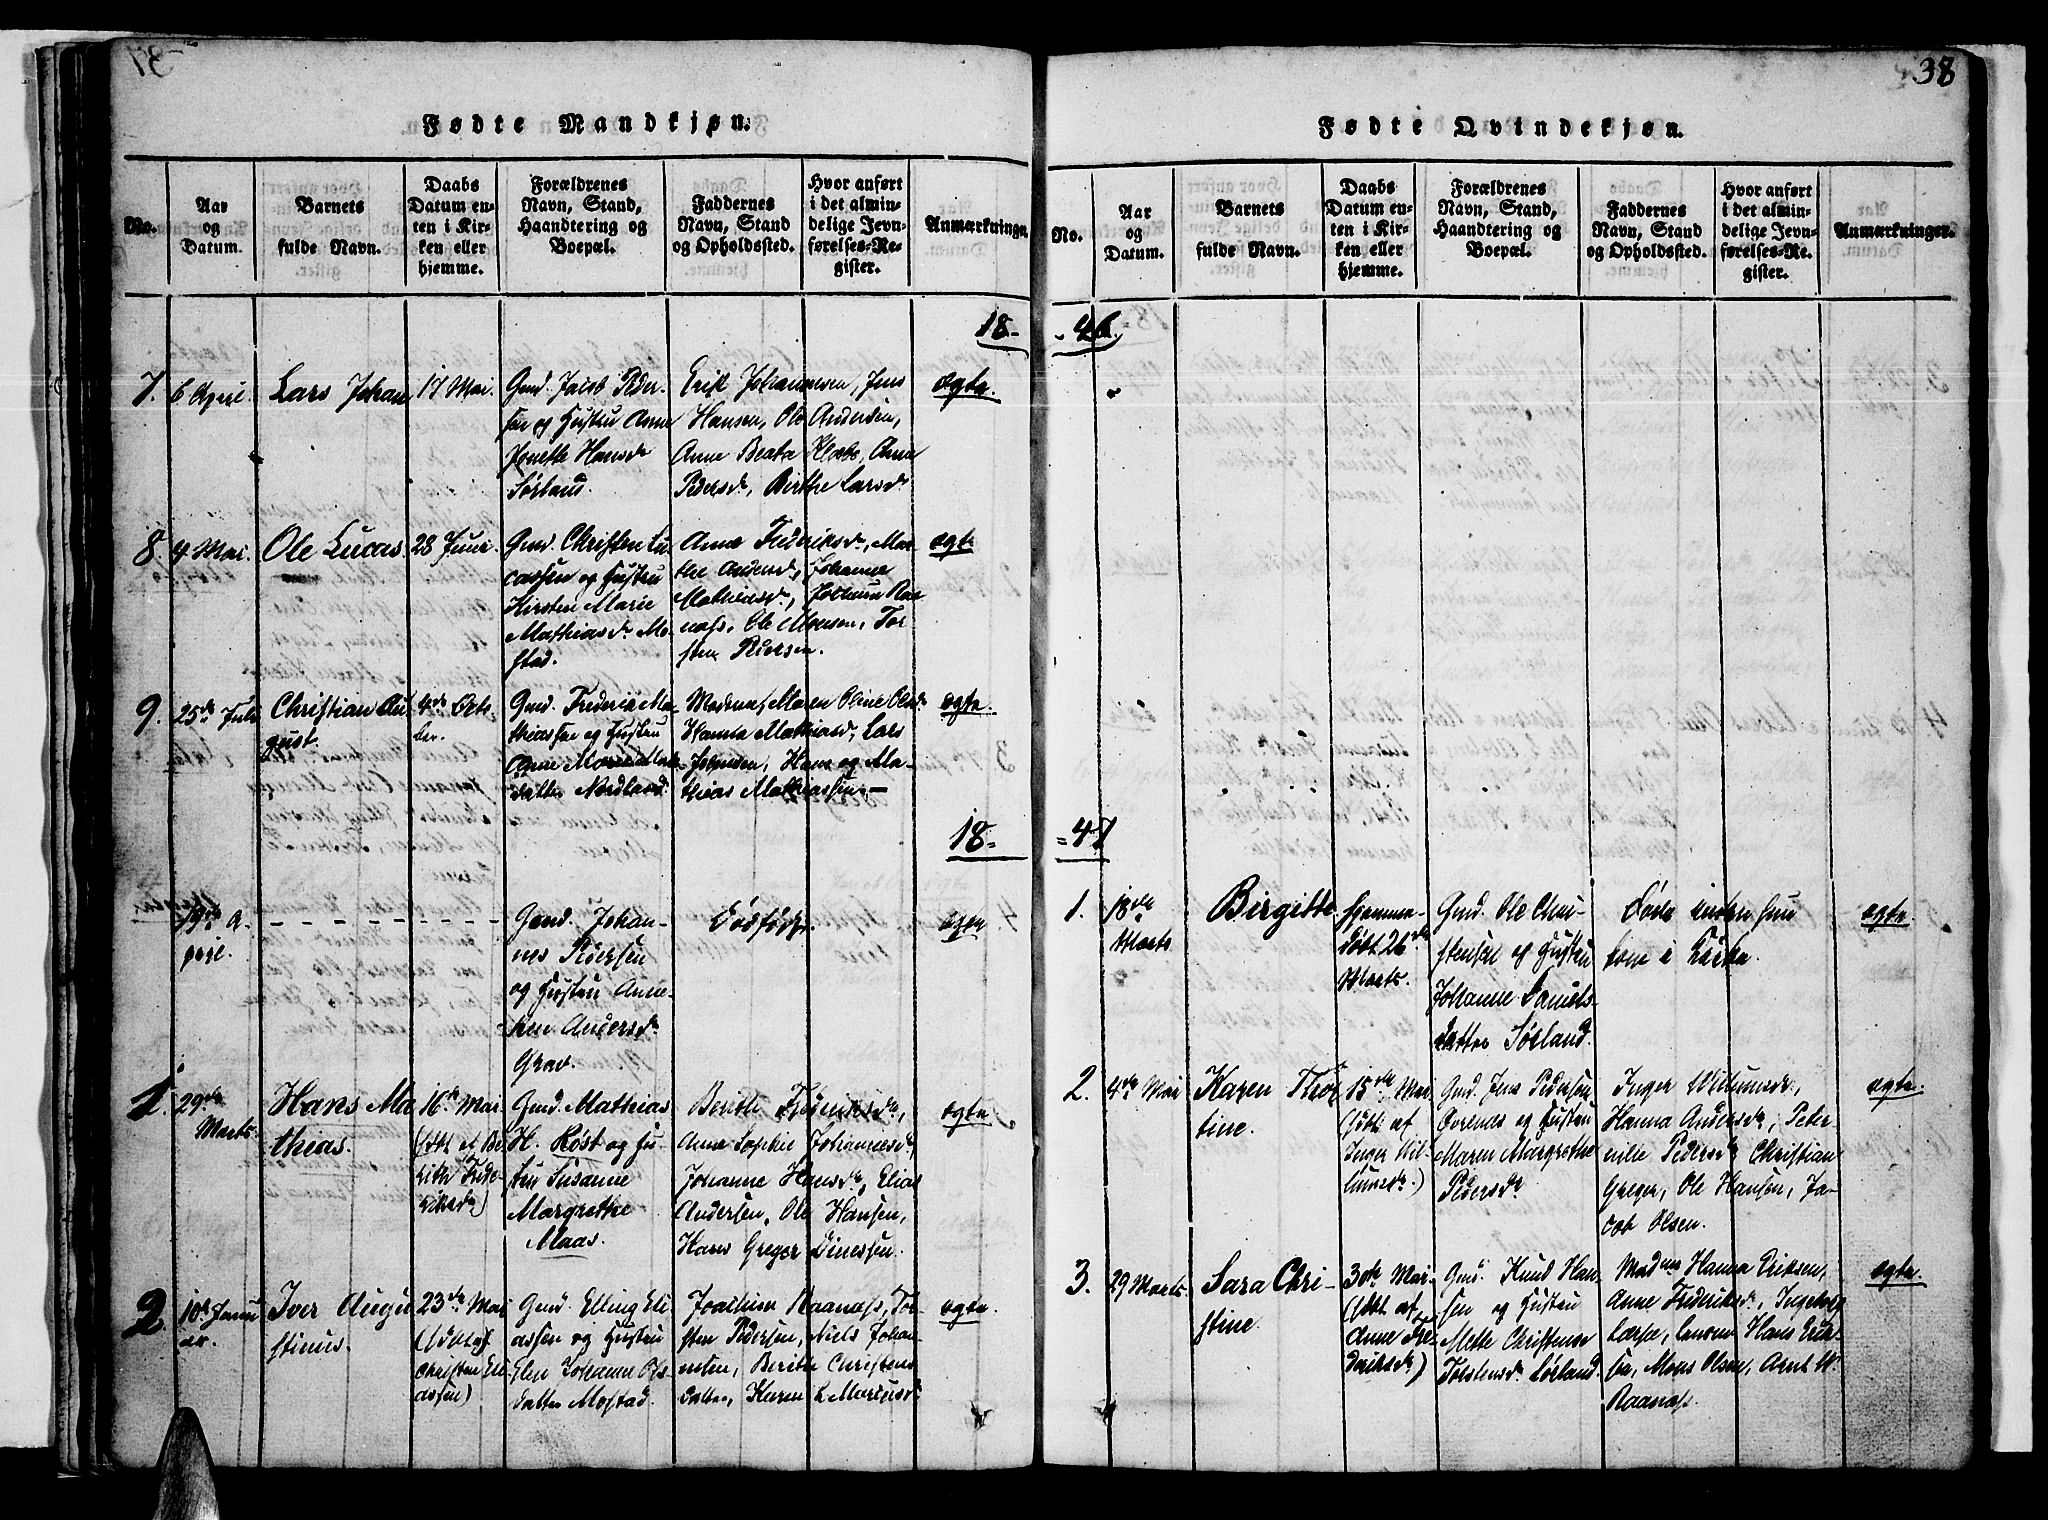 38
Fødte Mandkjøn.
No.
Aar
og
Datum.
Barnets
fulde Navn.
Daabs
Datum en-
ten i Kir-
ken eller
hjemme.
Forældrenes
Navn, Stand,
Haandtering og
Boepæl.
Faddernes
Navn, Stand
og Opholdssted.
Hvor anført
i det almin-
delige Jevn-
førelses-Re-
gister.
Anmærkninger
18-
7.
6 April
Lars Johan
17 Mai.
Gmd. Jacob Peder-
sen og Hustru Anne
Jonette Hansd.
Sørland.
Erik Johannesen, Jens
Hansen, Ole Andersen,
Anne Beata Anne
Pedersd., Birthe Larsd.
ægte.
8.
4 Mai.
Ole Lucas.
28 Juni.
Gmd. Christen Lu-
cassen og Hustru
Kirsten Marie
Mathiasd. Mo-
stad.
Anne Fredriksd., Mar-
the Andersd., Johanna
Mathiasd., Johann Raa-
næss, Ole Monsen, Tor-
sten Pedersen.
ægte
9.
25de Juli
Christian Au-
gust.
4de Octo-
ber.
Gmd. Frederik Ma-
thiassen og Hustru
Anne Marie
datter Nordland.
Madame Maren Oline Olsd.
Hanna Mathiasd., Lars
Johnsen, Hans og Ma-
thias Mathiassen.—
ægte.
18-
19de A-
pril.
- - - - - -
Gmd. Johan-
nes Pedersen
og Hustru Anne-
ken Andersd.
Grav.
Dødfødt.
ægte
1.
29de
Marts.
Hans Ma
thias.
16de Mai
(døbt af Be-
rith Frede-
riksd.)
Gmd. Matthias
H. Röst og Hu-
stru Susanne
Margrethe
Maas.
Berith Frederiksd.,
Anne Sophie Johannesd.,
Johanne Hansd., Elias
Andersen, Ole Hansen,
Hans Greger Dinessen.
ægte
2.
10de Janu
ar
Iver Augu
stinus.
23de Mai
(døbt af
Christen Eli
assen)
Gmd. Elling Eli-
assen og Hustru
Elen Johanna
datter Mostad.
Joachim Raanæss, Tor-
sten Pedersen, Niels Johan-
nesen, Berith Christens
datter, Karen L Mariusd.
ægte.
Fødte Qvindekjøn.
No.
Aar
og
Datum.
Barnets
fulde Navn.
Daabs
Datum en-
ten i Kir-
ken eller
hjemme.
Forældrenes
Navn, Stand,
Haandtering og
Boepæl.
Faddernes
Navn, Stand
og Opholdssted.
Hvor anført
i det almin-
delige Jevn-
førelses-Re-
gister.
Anmærkninger.
46.
=47
1.
18de
Marts
Birgitte
Hjemme-
døbt 26de
Marts.
Gmd. Ole Chri-
stensen og Hustru
Johanne Daniels-
datter Sørland.
Døde inden hun
kom i Kirke.
ægte
2.
4de Mai
Karen Thor
tine.
15de Mai
(døbt af
Inger Wil-
lumsd.)
Gmd. Jens Pedersen
og Hustru
Maren Margrethe
Pedersd.
Inger Willumsd.,
Hanna Andersd., Peter-
nille Pedersd., Christian
Greger, Ole Hansen, Ja-
cob Olsen.
ægte.
3.
29 Marts.
Sara Chri-
stine.
30de Mai
(døbt af
Anne Fre-
driksd.)
Gmd. Knud Han-
sen og Hustru
Mette Christence
Torstensd. Sørland.
Madme Hanna Eriksen,
Anne Fredriksd., Ingeborg
Hans Erik-
sen, Mons Olsen, Arnt W.
Raanæss.
ægte.